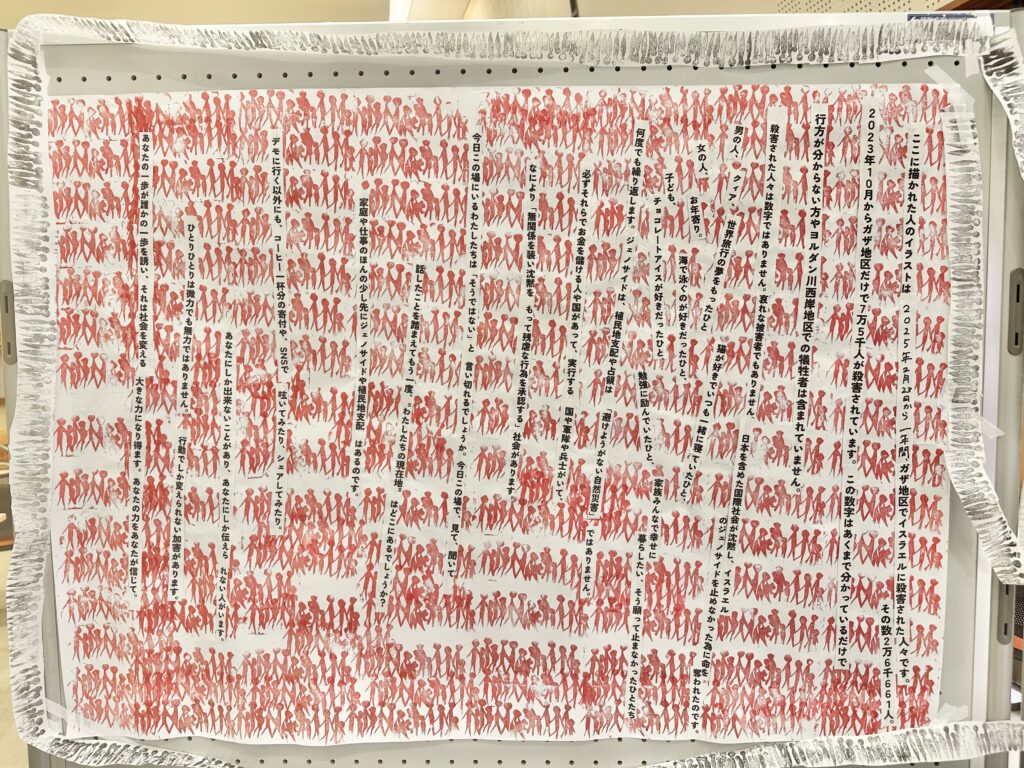 ここに描かれた人のイラストは 2025年2月23日から一年間、ガザ地区でイスラエルに殺害された人々です。
その数2万6千661人。
2023年10月からガザ地区だけで7万5千人が殺害されています。この数字はあくまで分かっているだけで
行方が分からない方やヨルダン川西岸地区での犠牲者は含まれていません。
殺害された人々は数字ではありません。哀れな被害者でもありません。
日本を含めた国際社会が沈黙し、イスラエルのジェノサイドを止めなかった為に命を奪われたのです。
男の人、クィア、世界旅行の夢をもったひと
猫が好きでいつも一緒に寝ていたひと、
女の人、お年寄り。
海で泳ぐのが好きだったひと、
家族みんなで幸せに暮らしたい、そう願って止まなかったひとたち
子ども、チョコレートアイスが好きだったひと、
勉強に励んでいたひと、
何度でも繰り返します。ジェノサイドは、植民地支配や占領は
「避けようがない自然災害」ではありません。
必ずそれらでお金を儲ける人や国があって、実行する国や軍隊や兵士がいて、
なにより「無関係を装い沈黙を、もって残虐な行為を承認する」社会があります。
今日この場にいるわたしたちは「そうではない」と言い切れるでしょうか。今日この場で、見て、聞いて
話したことを踏まえてもう一度、「わたしたちの現在地」はどこにあるでしょうか?
家庭や仕事のほんの少し先にジェノサイドや植民地支配 はあるのです。
デモに行く以外にも、コーヒー一杯分の寄付や、SNSで 呟いてみたり、シェアしてみたり、
あなたにしか出来ないことがあり、あなたにしか伝えられない人がいます。
ひとりひとりは微力でも無力ではありません。 行動でしか変えられない加害があります。
あなたの一歩が誰かの一歩を誘い、それは社会を変える 大きな力になり得ます。あなたの力をあなたが信じて。